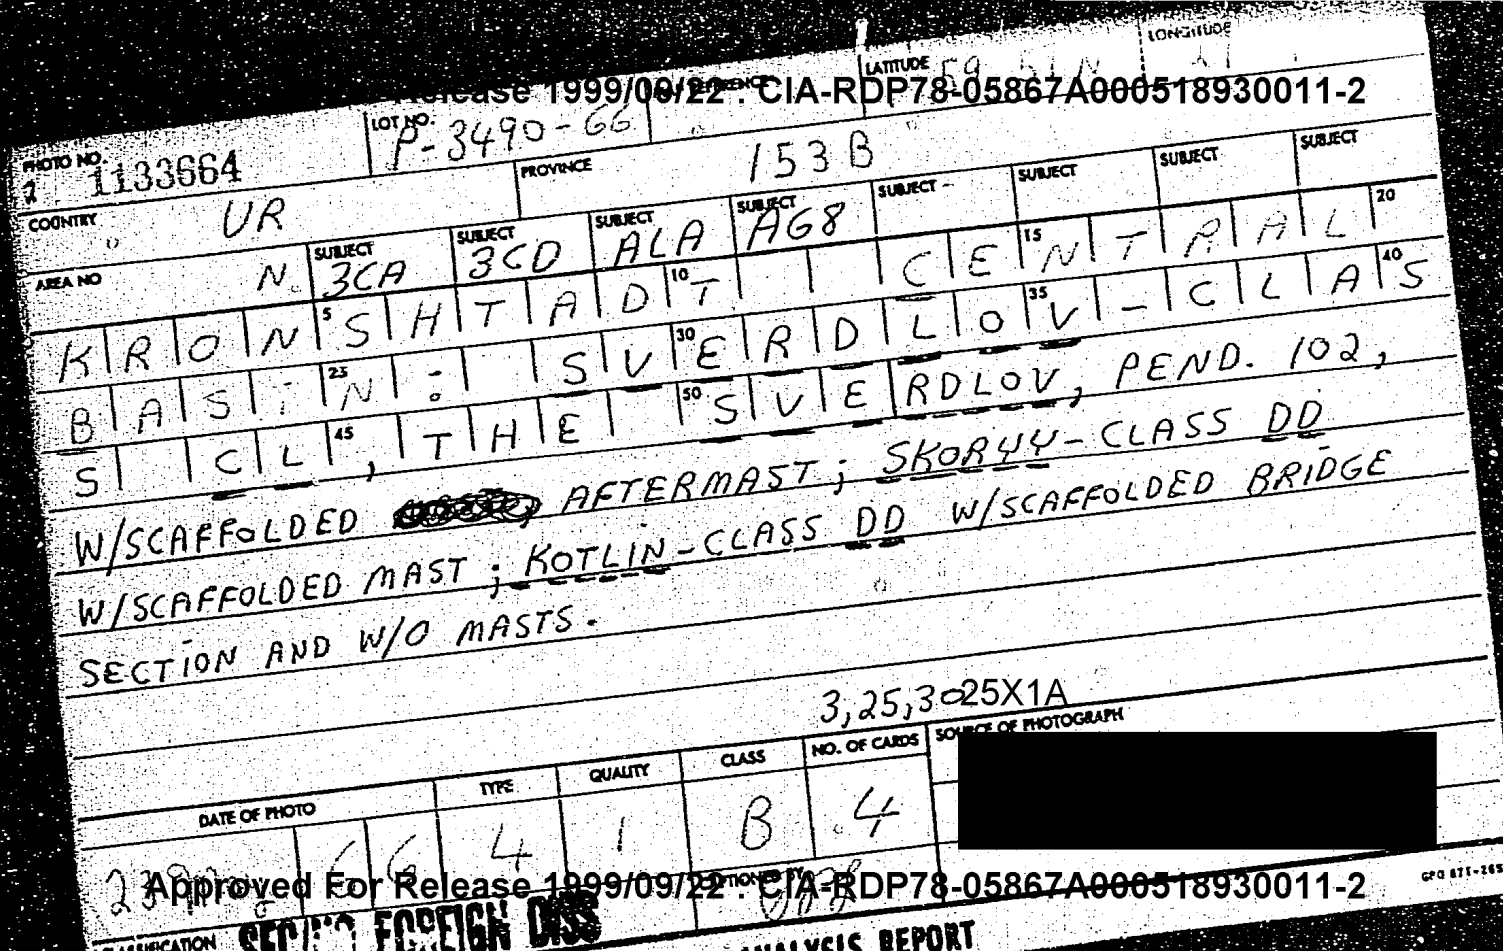 LONGITUDE
LATITUDE 59
Release 1999/09/22 : CIA-RDP78-05867A000518930011-2
LOT NO. P-3490-66
PHOTO NO. 1133664
2
PROVINCE 153B
COUNTRY UR
SUBJECT SUBJECT SUBJECT SUBJECT SUBJECT SUBJECT SUBJECT SUBJECT
AREA NO N. 3CA 3CD ALA AG8
5 10 15 20
KRONSHTADT CENTRAL
25 30 35 40
BASIN: SVERDLOV-CLAS
45 50
S CL, THE SVERDLOV, PEND. 102,
W/SCAFFOLDED AFTERMAST; SKORYY-CLASS DD
W/SCAFFOLDED MAST; KOTLIN-CLASS DD W/SCAFFOLDED BRIDGE
SECTION AND W/O MASTS.
3,25,30 25X1A
DATE OF PHOTO TYPE QUALITY CLASS NO. OF CARDS SOURCE OF PHOTOGRAPH
23 66 4 1 B 4
Approved For Release 1999/09/22 : CIA-RDP78-05867A000518930011-2
GPO 871-265
CLASSIFICATION FOREIGN DISS
ANALYSIS REPORT